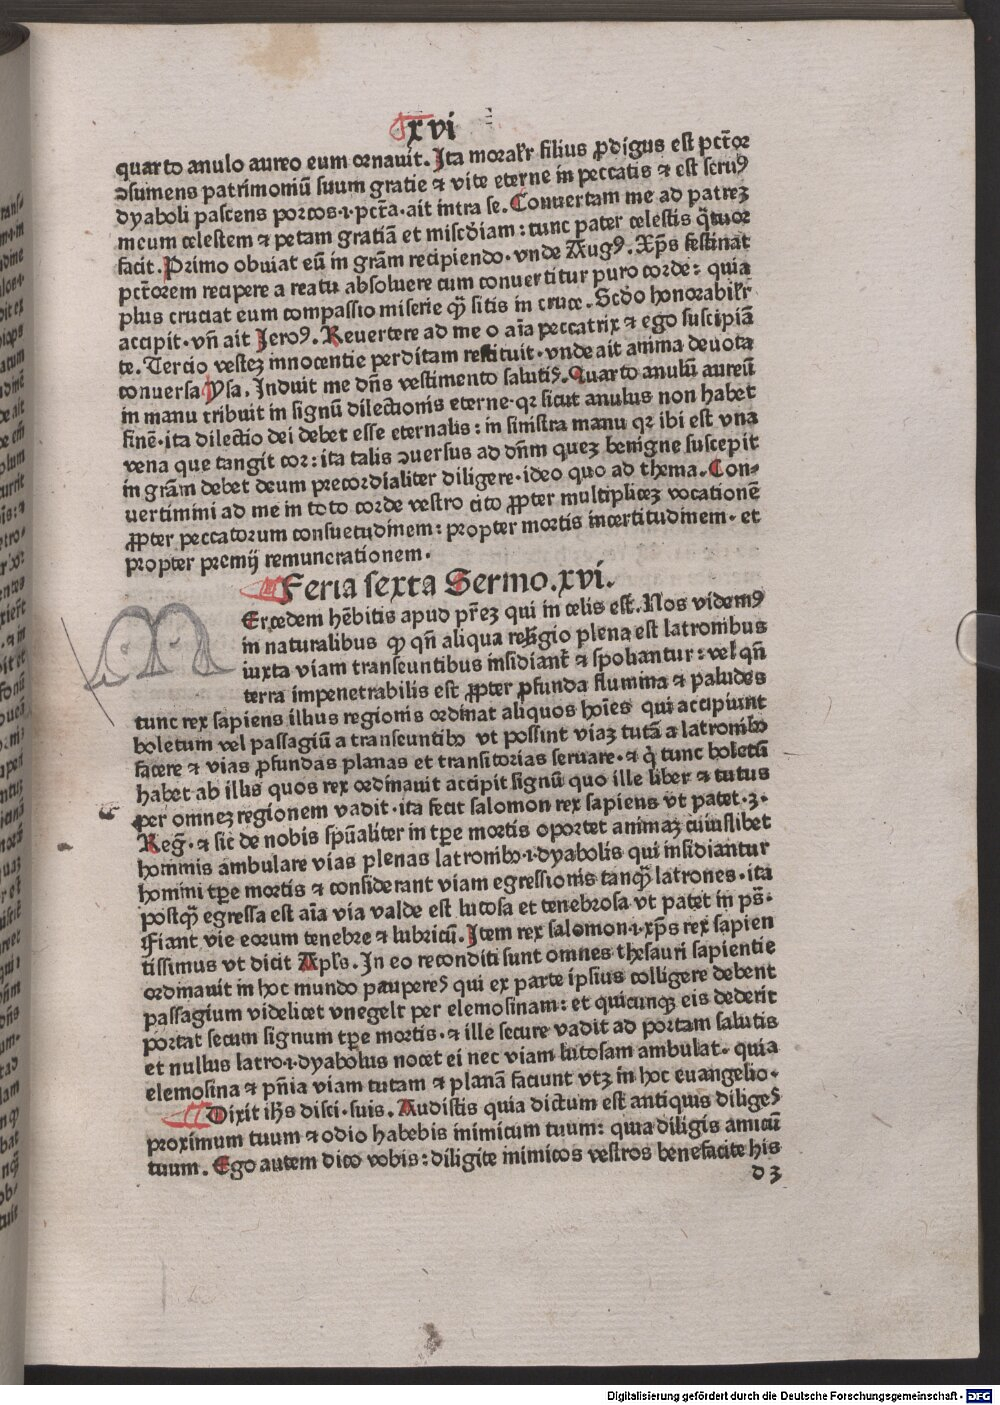 xvi
quarto anulo aureo eum ornauit. Ita moral'r filius ꝓdigus est pctōr
ↄsumens patrimoniū suum gratie ⁊ vite eterne in peccatis ⁊ est seruꝰ
dyaboli pascens porcos .i. pctā. ait intra se. Conuertam me ad patreꝫ
meum celestem ⁊ petam gratiā et miscdiam: tunc pater celestis q̄tuor
facit. Primo obuiat eū in grām recipiendo. vnde Augꝰ. Xp̄s festinat
pctōrem recipere a reatu absoluere cum conuertitur puro corde: quia
plus cruciat eum compassio miserie qȝ sitis in cruce. Scdo honorabil'r
accipit. vn̄ ait Jeroꝰ. Reuertere ad me o aīa peccatrix ⁊ ego suscipiā
te. Tercio vesteꝫ innocentie perditam restituit. vnde ait anima deuota
conuersa Ysa. Induit me dn̄s vestimento salutis. Quarto anulū aureū
in manu tribuit in signū dilectionis eterne. qꝛ sicut anulus non habet
finē. ita dilectio dei debet esse eternalis: in sinistra manu qꝛ ibi est vna
vena que tangit cor: ita talis ↄuersus ad dn̄m queꝫ benigne suscepit
in grām debet deum precordialiter diligere. ideo quo ad thema. Con-
uertimini ad me in toto corde vestro cito ꝓpter multipliceꝫ vocationē
ꝓpter peccatorum consuetudinem: propter mortis incertitudinem. et
propter premij remunerationem.
Feria sexta Sermo. xvi.
M
Ercedem hēbitis apud pr̄eꝫ qui in celis est. Nos videmꝰ
in naturalibus ꝙ qn̄ aliqua religio plena est latronibus
iuxta viam transeuntibus insidiant̄ ⁊ spoliantur: vel qn̄
terra impenetrabilis est ꝓpter ꝓfunda flumina ⁊ paludes
tunc rex sapiens illius regionis ordinat aliquos hoīes qui accipiunt
boletum vel passagiū a transeuntibꝰ vt possint viaꝫ tutā a latronibꝰ
facere ⁊ vias ꝓfundas planas et transitorias seruare. ⁊ q̇ tunc boletū
habet ab illis quos rex ordinauit accipit signū quo ille liber ⁊ tutus
per omneꝫ regionem vadit. ita fecit salomon rex sapiens vt patet .3.
Reg̃. ⁊ sic de nobis spūaliter in tp̄e mortis oportet animaꝫ cuiuslibet
hominis ambulare vias plenas latronibꝰ .i. dyabolis qui insidiantur
homini tp̄e mortis ⁊ considerant viam egressionis tanqȝ latrones. ita
postqȝ egressa est aīa via valde est lutosa et tenebrosa vt patet in ps̄.
Fiant vie eorum tenebre ⁊ lubricū. Item rex salomon .i. xp̄s rex sapien
tissimus vt dicit Apl's. In eo reconditi sunt omnes thesauri sapientie
ordinauit in hoc mundo pauperes qui ex parte ipsius colligere debent
passagium videlicet vngelt per elemosinam: et quicunqꝫ eis dederit
portat secum signum tp̄e mortis. ⁊ ille secure vadit ad portam salutis
et nullus latro .i. dyabolus nocet ei nec viam lutosam ambulat. quia
elemosina ⁊ pn̄ia viam tutam ⁊ planā faciunt vtꝫ in hoc euangelio.
Dixit ih̄s disci. suis. Audistis quia dictum est antiquis diliges
proximum tuum ⁊ odio habebis inimicum tuum: quia diligis amicū
tuum. Ego autem dico vobis: diligite inimicos vestros benefacite his
d 3
Digitalisierung gefördert durch die Deutsche Forschungsgemeinschaft - DFG